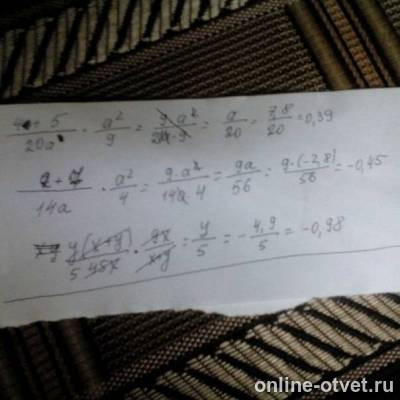 4+5/20a · a²/9 = 9·a²/20a·9 = a/20 = 7,8/20 = 0,39
2+7/14a · a²/4 = 9·a²/14a·4 = 9a/56 = 9·(-2,8)/56 = -0,45
y(x+y)/5 45x · 9x/x+y = y/5 = -4,9/5 = -0,98
online-otvet.ru